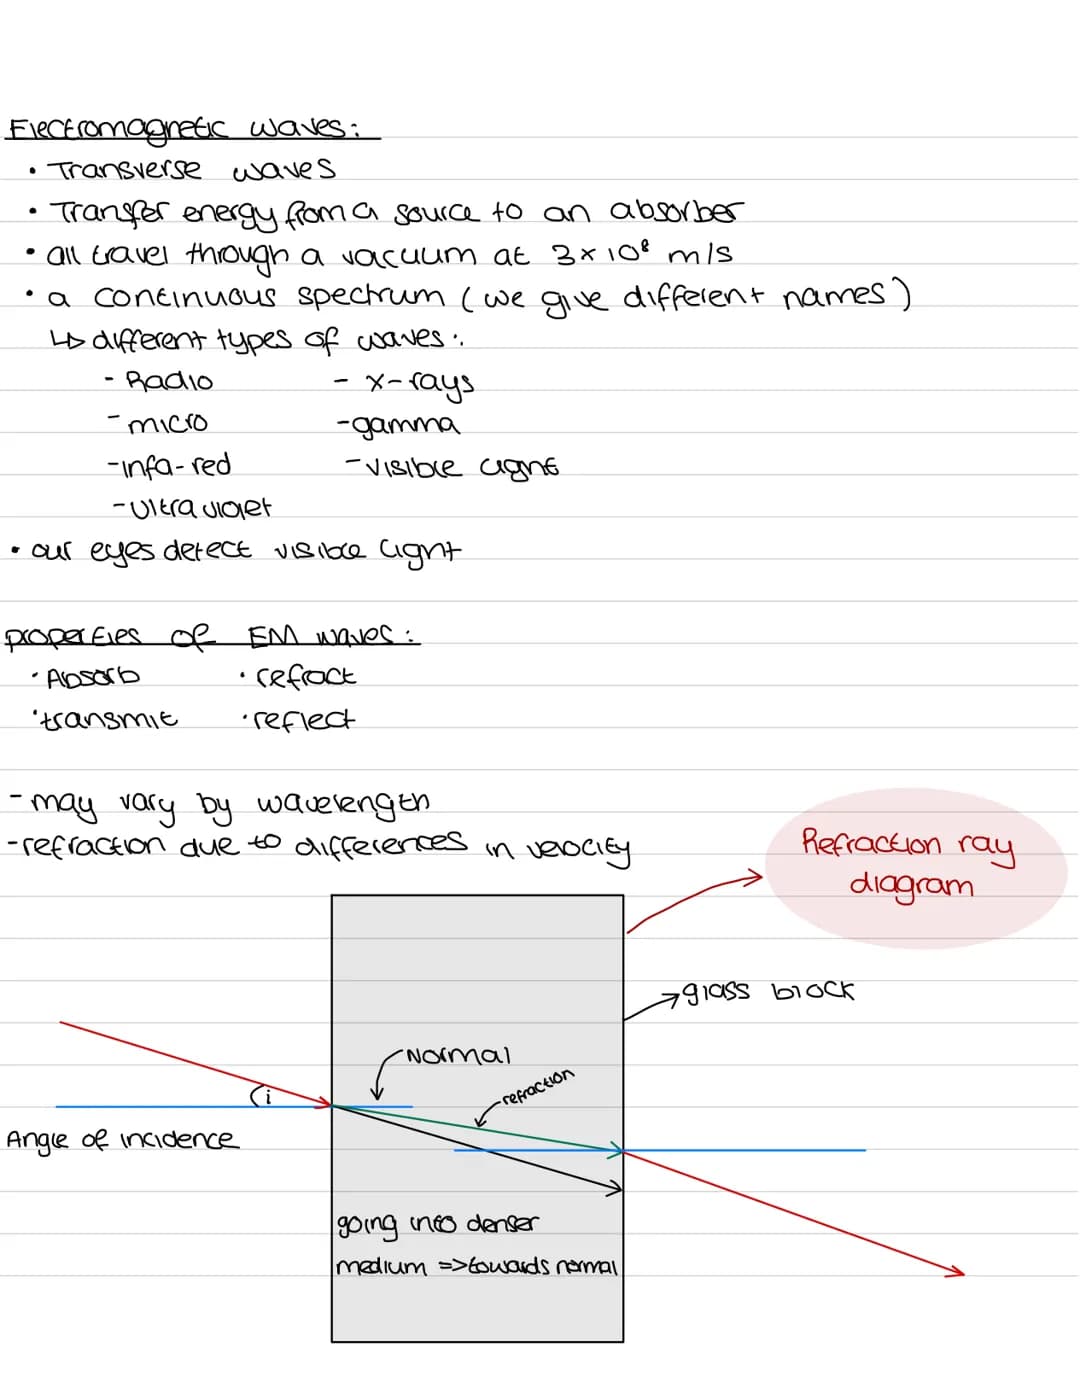 Electromagnetic waves:
• Transverse waves
• Transfer energy from a source to an absorber
• all travel through a vacuum at 3×10⁸ m/s
• a continuous spectrum (we give different names)
↳ different types of waves:
- Radio - x-rays
- micro - gamma
- infa-red - visible light
- ultraviolet
• our eyes detect visible light
properties of EM waves:
• Absorb • refract
• transmit • reflect
- may vary by wavelength
- refraction due to differences in velocity
Refraction ray
diagram
→ glass block
Normal
refraction
i
Angle of incidence
going into denser
medium => towards normal